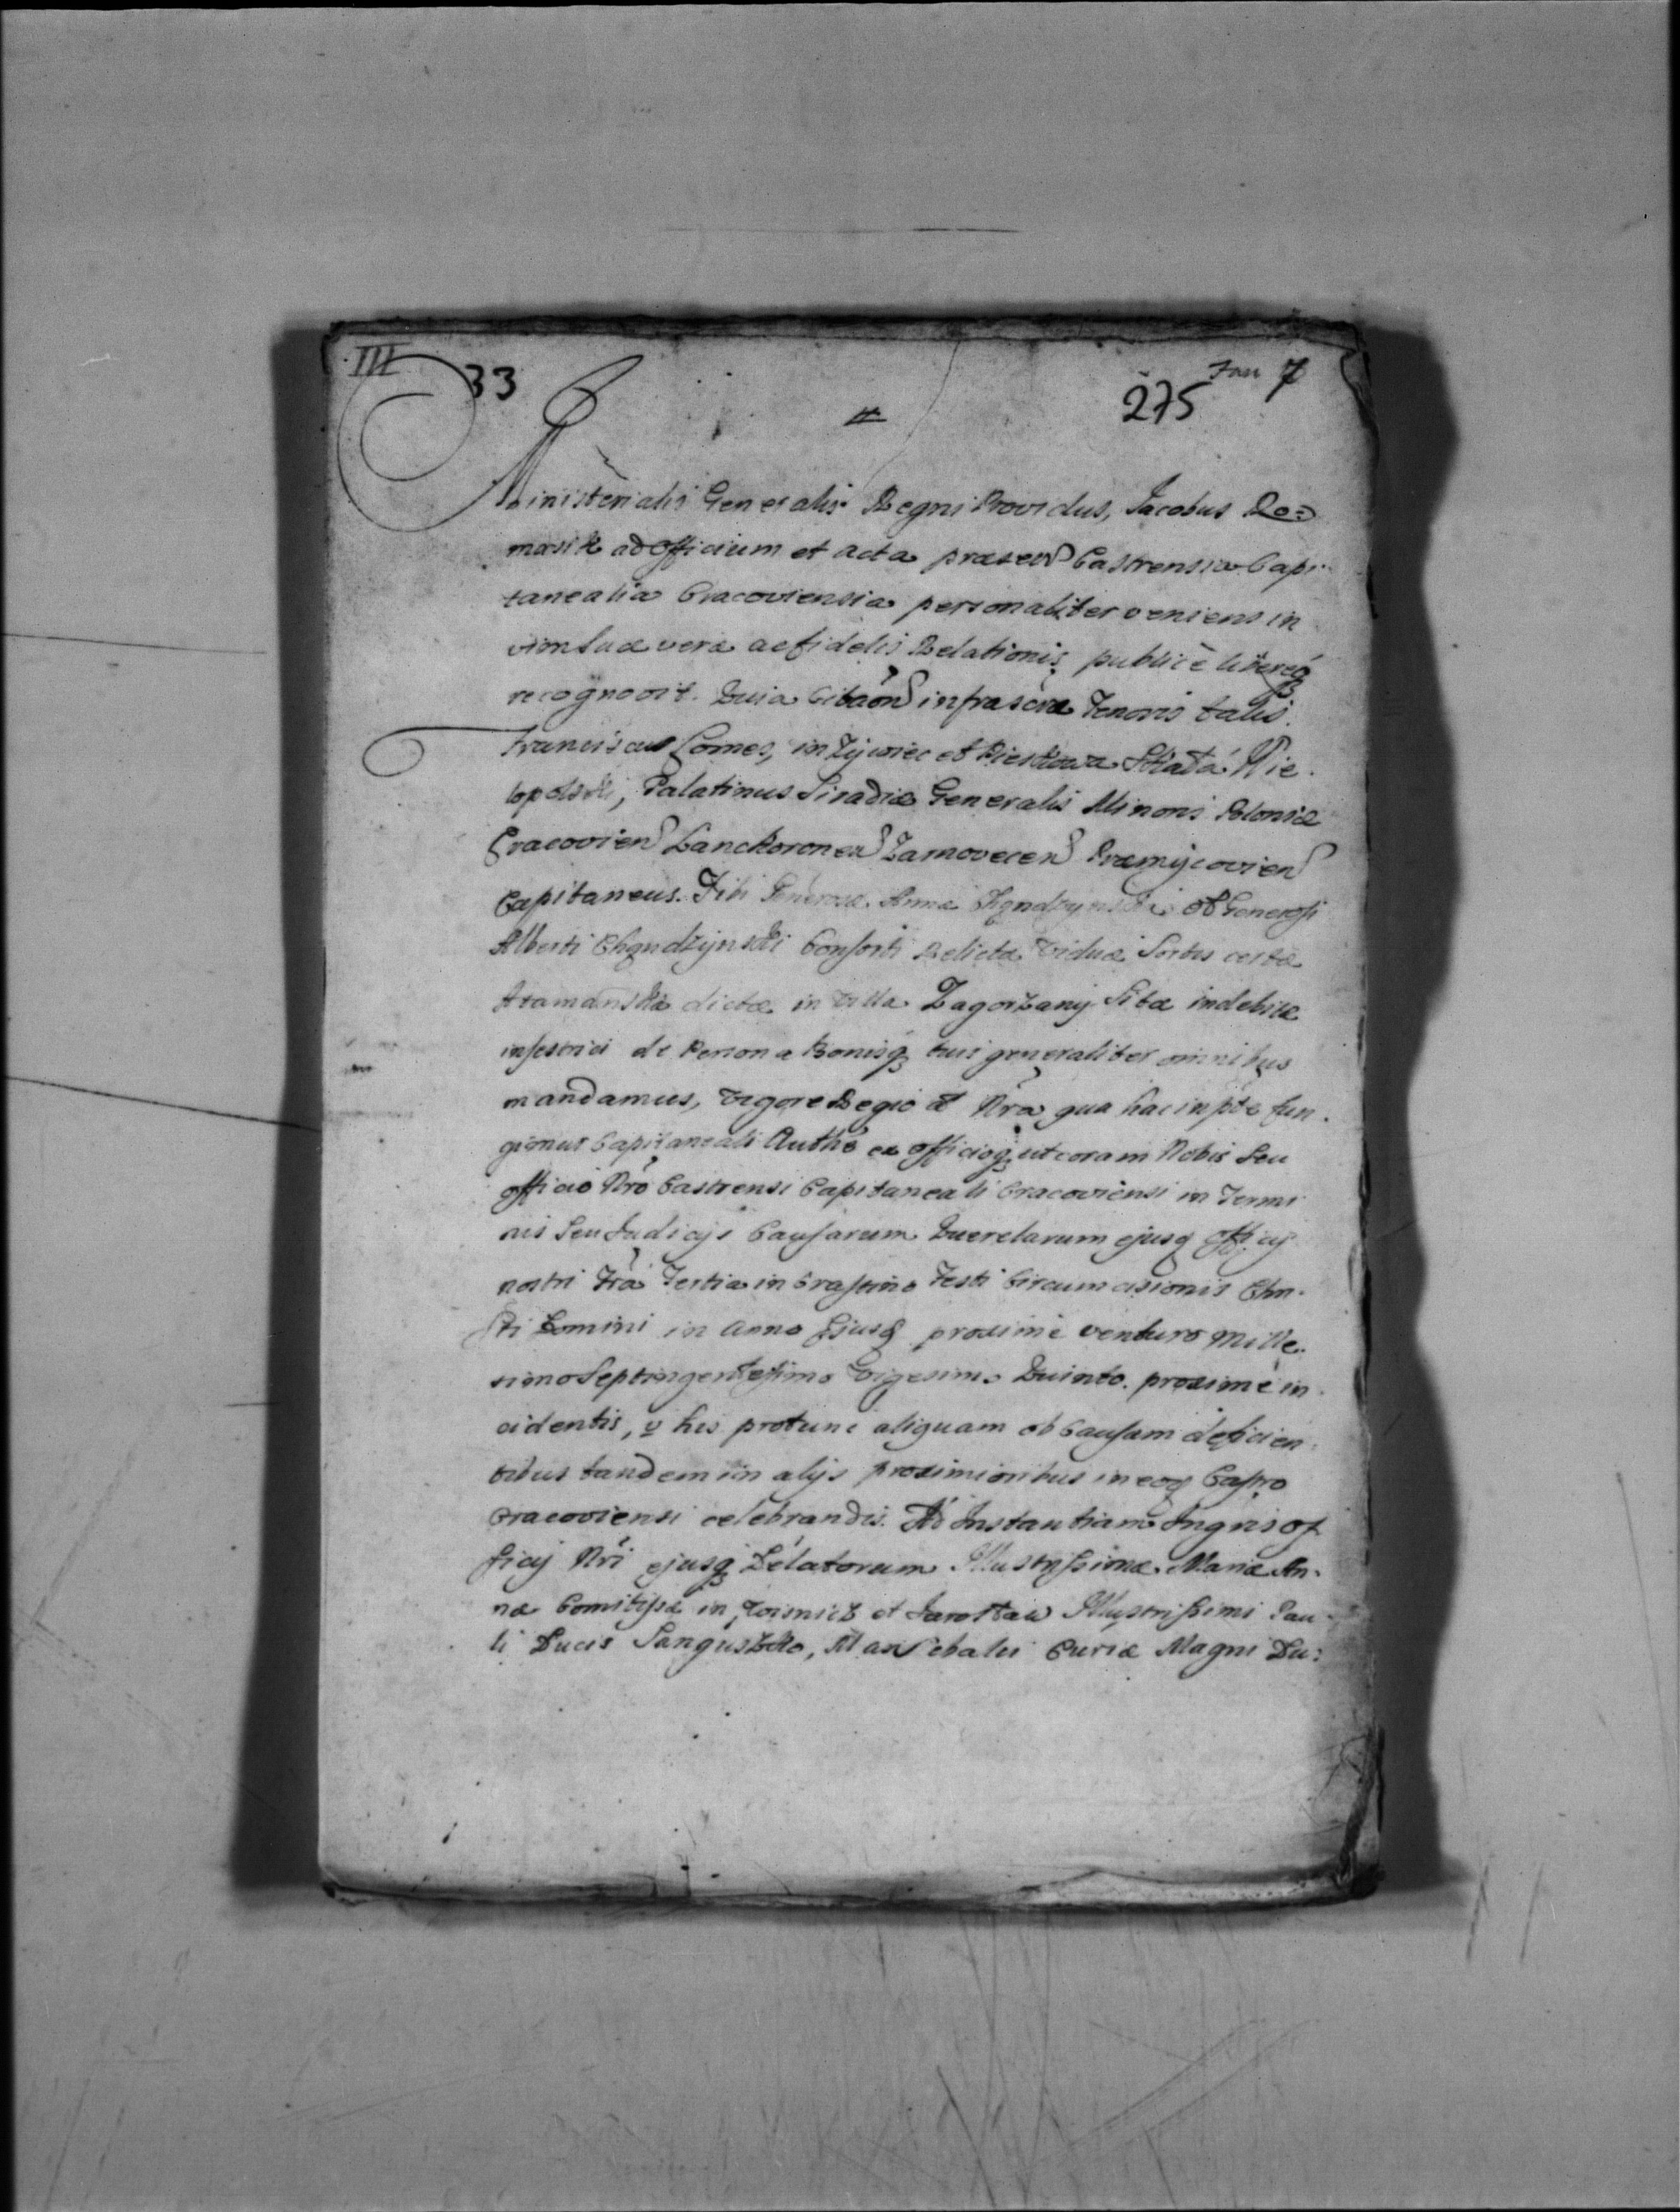 III 33 # 275 Jan 7
Ministerialis Generalis Regni Providus, Jacobus Ro=
masik ad officium et acta præsen Castrensia Capi
tanealia Cracoviensia personaliter veniens in
vim suæ veræ ac fidelis Relationis publicè libereq
recognovit. Quia Citaon infrascrã Tenoris talis.
Franciscus Comes, in Zywiec et Pieskowa Skała Wie
lopolski, Palatinus Siradiæ Generalis Minoris Poloniæ
Cracovien Lanckoronen Zarnovecen Præmijcovien
Capitaneus. Tibi Generosæ Annæ et Generosi
Alberti Chgndzijnski Consorti Relictæ Viduæ Sortis certæ
dictæ in Villa Zagorzany Sitæ indebitæ
de Persona Bonisq tuis generaliter omnibus
mandamus, Vigore Regio et Nrã qua hac in pte fun
gimur Capitaneali Autthe ex officioq ut coram Nobis Seu
officio Nro Castrensi Capitaneali Cracoviensi in Termi
nis Seu Judicijs Causarum Querelarum ejusq officij
nostri Frã Tertia in Crastino Festi Circumcisionis Chri
sti Domini in Anno Ejusq proximè venturo Mille
simo Septingentesimo Vigesimo Quinto. proximè in
cidentis, v his protunc aliquam ob Causam deficien
tibus tandem in alijs proximioribus in eoq Castro
Cracoviensi celebrandis. Ad Instantiam Ingnis Of
ficij Nri ejusq Delatorum Illustrissimæ Mariæ An
næ Comitissæ in Wisnicz et Jarosław Illustrissimi Pau
li Ducis Sanguszko, Marschalci Curiæ Magni Du: